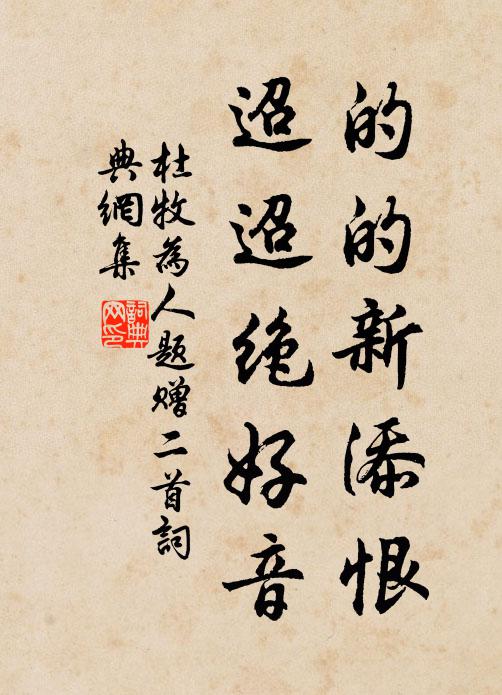 的的新添恨
迢迢绝好音
杜牧為人題赠二首詞
典網集
詞典
网印